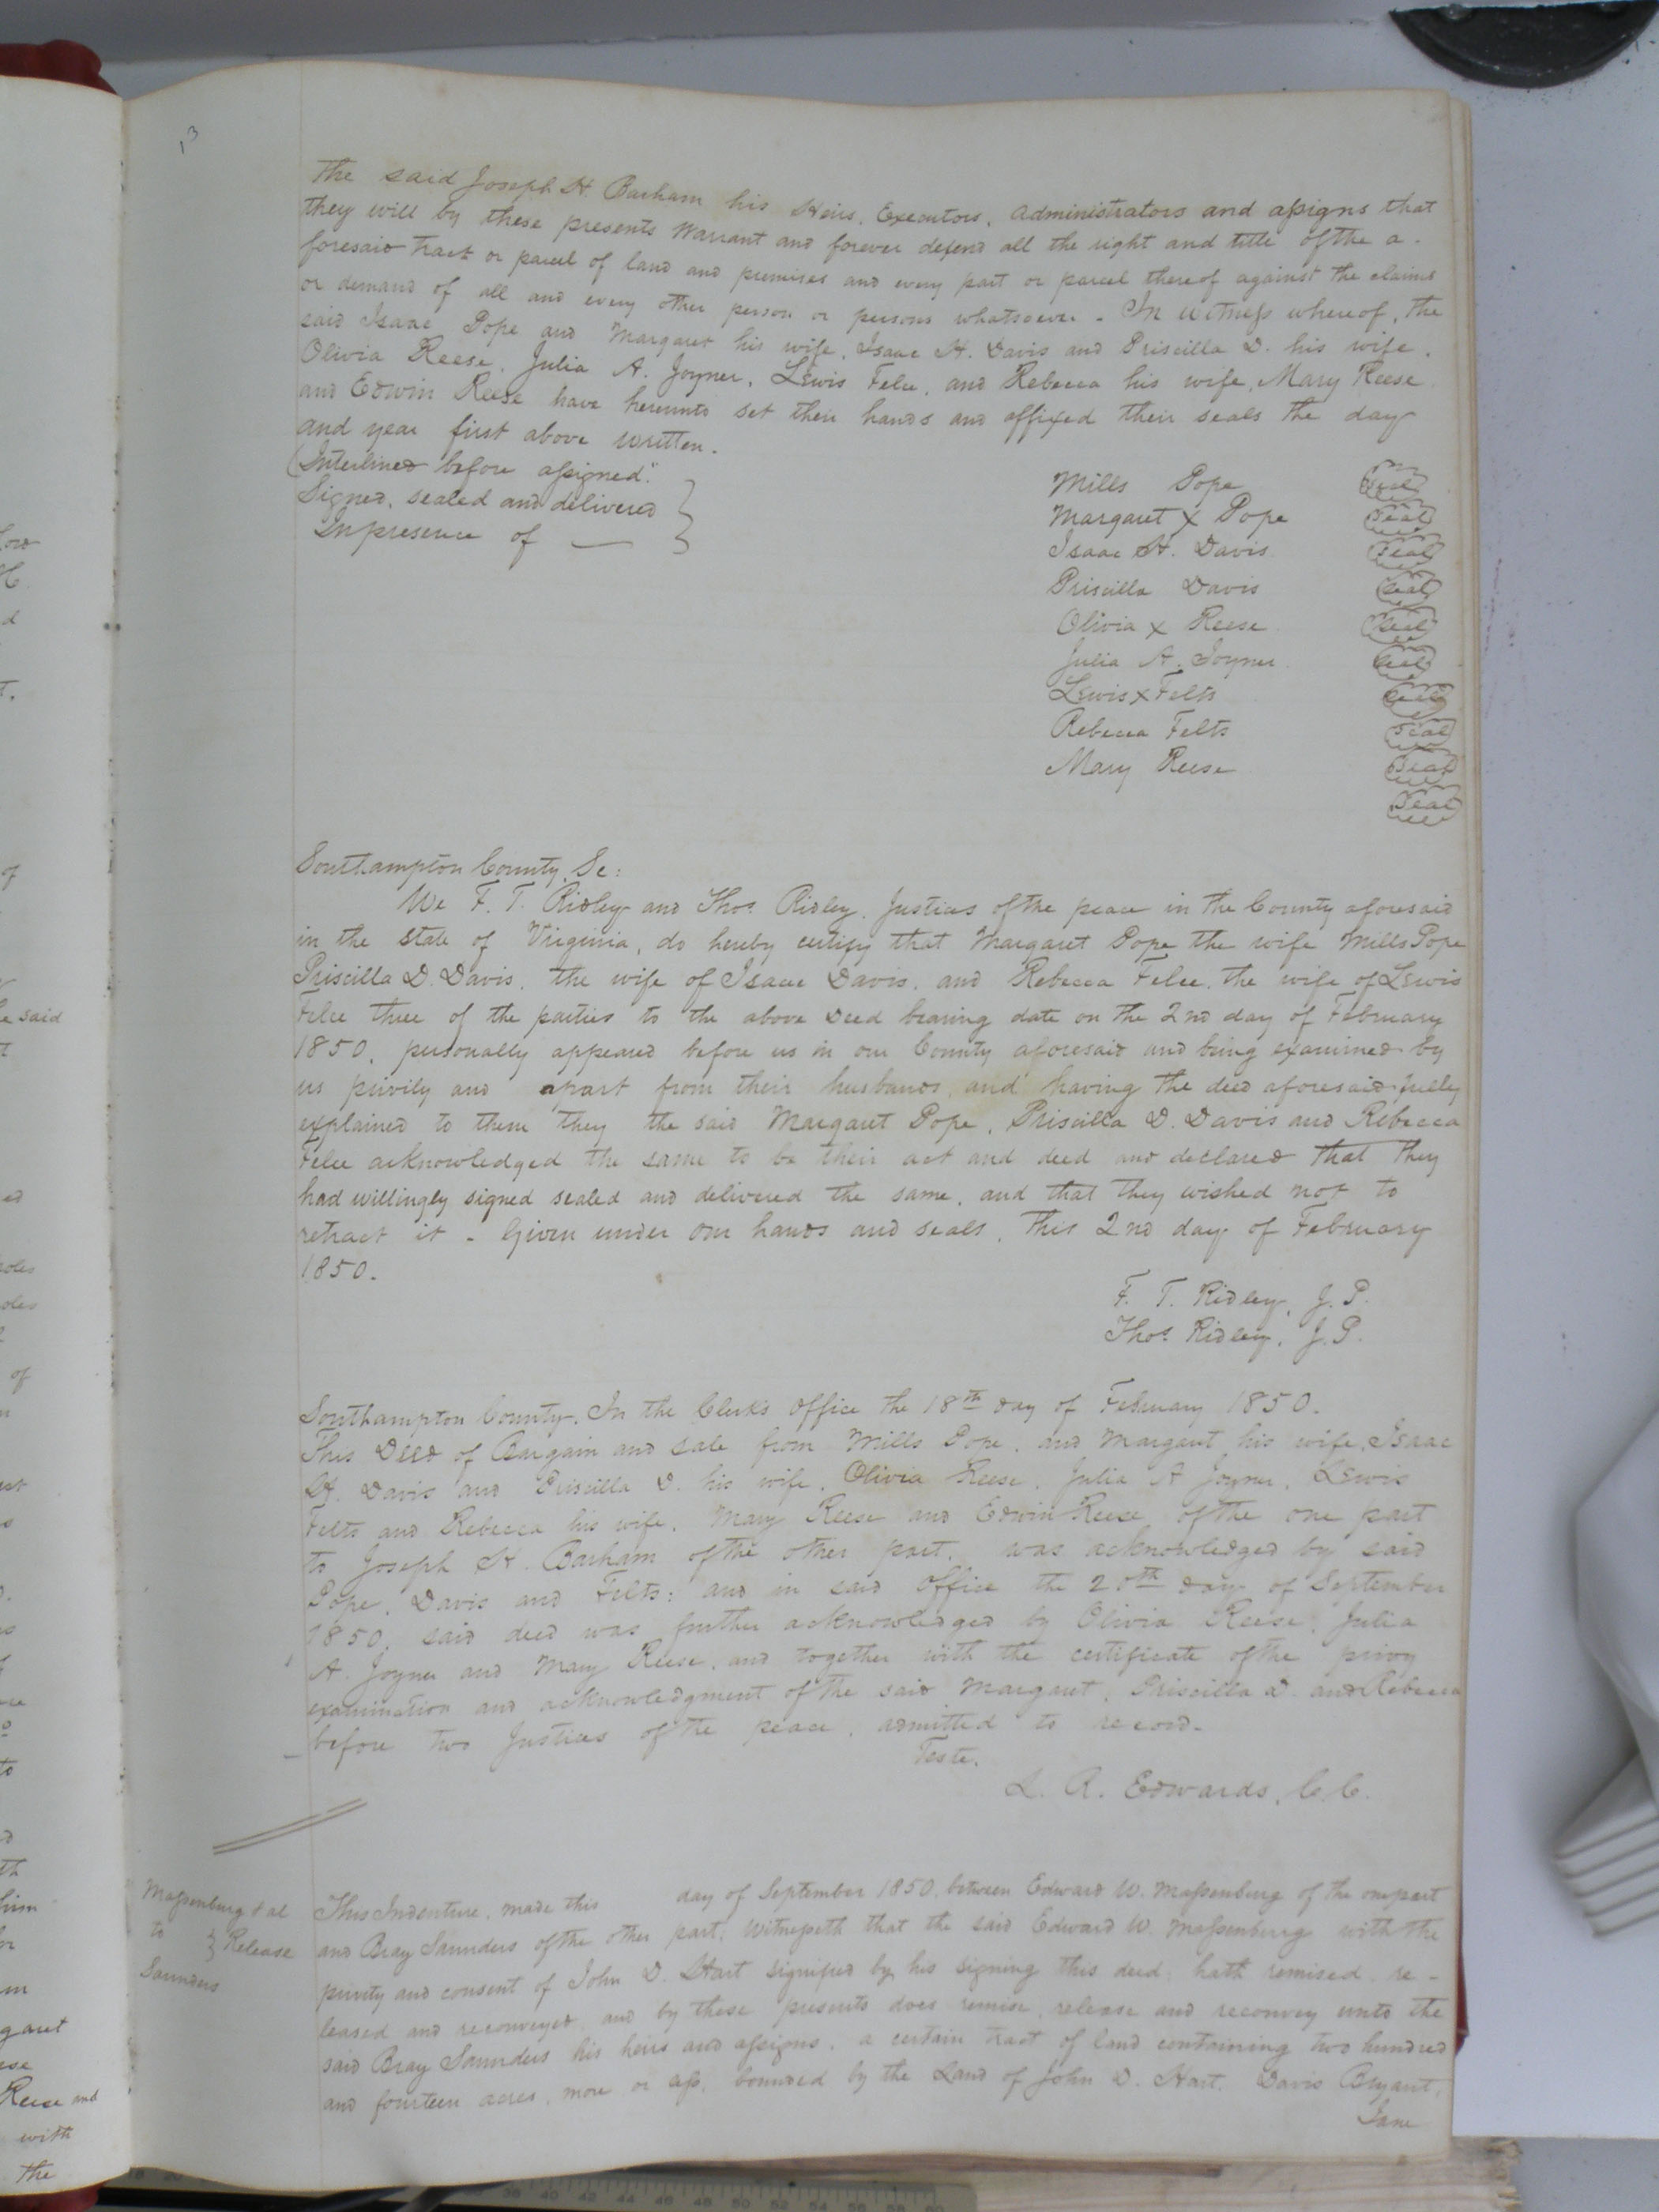 13
The said Joseph H. Barham his Heirs, Executors, Administrators and assigns that
they will by these presents Warrant and forever defend all the right and title of the a-
foresaid tract or parcel of land and premises and every part or parcel thereof against the claims
or demand of all and every other person or persons whatsoever. In witness whereof, the
said Isaac Pope and Margaret his wife, Isaac H. Davis and Priscilla D. his wife,
Olivia Reese, Julia A. Joyner, Lewis Felce, and Rebecca his wife, Mary Reese
and Edwin Reese have hereunto set their hands and affixed their seals the day
and year first above written.
(Interlined before assigned."
Signed, sealed and delivered
In presence of —
Mills Pope Seal
Margaret X Pope Seal
Isaac H. Davis Seal
Priscilla Davis Seal
Olivia X Reese Seal
Julia A. Joyner Seal
Lewis X Felts Seal
Rebecca Felts Seal
Mary Reese Seal
Seal
Southampton County, Sc:
We F. T. Ridley and Thos. Ridley, Justices of the peace in the County aforesaid
in the State of Virginia, do hereby certify that Margaret Pope the wife Mills Pope
Priscilla D. Davis, the wife of Isaac Davis, and Rebecca Felce, the wife of Lewis
Felce three of the parties to the above Deed bearing date on the 2nd day of February
1850, personally appeared before us in our County aforesaid and being examined by
us privily and apart from their husbands, and having the deed aforesaid fully
explained to them they the said Margaret Pope, Priscilla D. Davis and Rebecca
Felce acknowledged the same to be their act and deed and declared that they
had willingly signed sealed and delivered the same, and that they wished not to
retract it - Given under our hands and seals, this 2nd day of February
1850.
F. T. Ridley, J. P.
Thos. Ridley, J. P.
Southampton County. In the Clerk's Office the 18th day of February 1850.
This Deed of Bargain and sale from Mills Pope, and Margaret his wife, Isaac
H. Davis and Priscilla D. his wife, Olivia Reese, Julia A Joyner, Lewis
Felts and Rebecca his wife, Mary Reese and Edwin Reese of the one part
to Joseph H. Barham of the other part, was acknowledged by said
Pope, Davis and Felts: and in said Office the 20th day of September
1850, said deed was further acknowledged by Olivia Reese, Julia
A. Joyner and Mary Reese, and together with the certificate of the privy
examination and acknowledgment of the said Margaret, Priscilla D. and Rebecca
before two Justices of the peace, admitted to record.
Teste,
L. R. Edwards, C. C.
Massenburg & al
to } Release
Saunders
This Indenture, made this day of September 1850, between Edward W. Massenburg of the one part
and Bray Saunders of the other part, Witnesseth that the said Edward W. Massenburg with the
privity and consent of John D. Hart signified by his signing this deed, hath remised, re-
leased and reconveyed, and by these presents does remise, release and reconvey unto the
said Bray Saunders his heirs and assigns, a certain tract of land containing two hundred
and fourteen acres, more or less, bounded by the Land of John D. Hart, Davis Bryant,
Jane